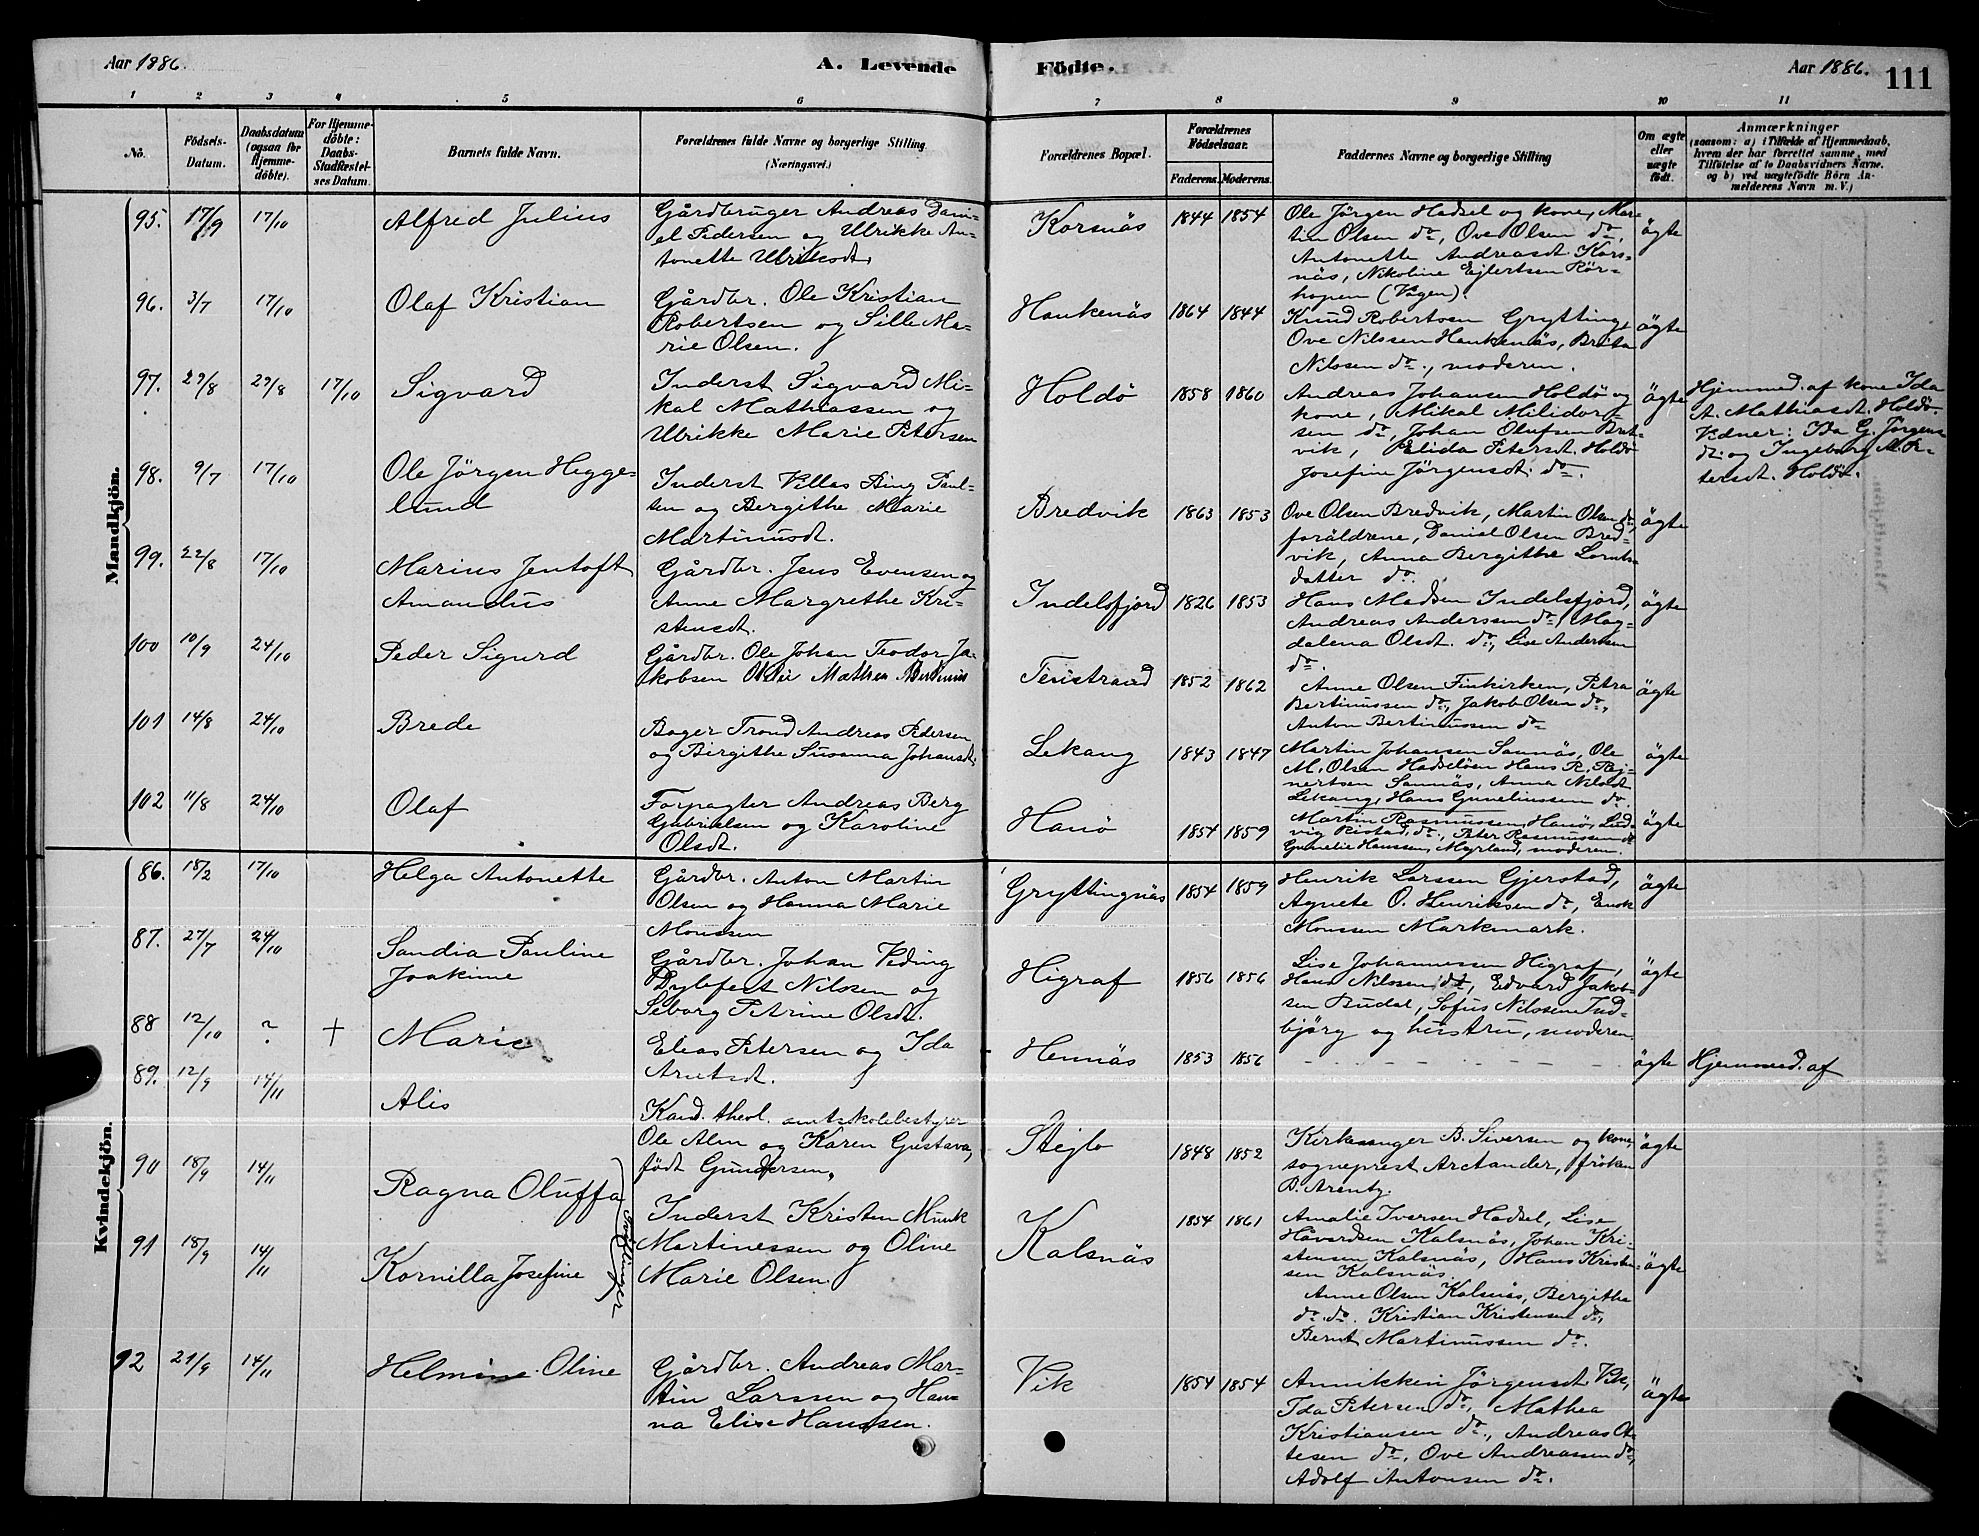 Aar 1886.
A. Levende
Födte.
Aar 1886.
111
1 2 3 4 5 6 7 8 9 10 11
No.
Födsels-
Datum.
Daabsdatum
(ogsaa for
Hjemme-
döbte).
For Hjemme-
döbte:
Daabs-
Stadfæstel-
ses Datum.
Barnets fulde Navn.
Forældrenes fulde Navne og borgerlige Stilling
(Næringsvei.)
Forældrenes Bopæl.
Forældrenes
Födselsaar.
Faderens. Moderens.
Faddernes Navne og borgerlige Stilling
Om ægte
eller
uægte
födt.
Anmærkninger
(saasom: a) i Tilfælde af Hjemmedaab,
hvem der har forrettet samme, med
Tilföielse af to Daabsvidners Navne.
og b) ved uægtefödte Börn An-
melderens Navn m. V.)
Mandkjön.
95. 17/9 17/10 Alfred Julius
Gårdbruger Andreas Dani-
el Pedersen og Ulrikke An-
tonette Ulriksdt.
Korsnäs 1844 1854
Ole Jörgen Hadsel og kone, Mar-
tin Olsen do, Ove Olsen do,
Antonette Andreasdt. Kors-
näs, Nikoline Ejlertsen Rör-
hopen (Vågen).
ägte
96. 3/7 17/10 Olaf Kristian
Gårdbr. Ole Kristian
Robertsen og Sille Ma-
rie Olsen.
Haukenäs 1864 1844
Knud Robertsen Grytting,
Ove Nilssen Haukenäs, Brita
Nilssen do., moderen.
ägte
97. 29/8 29/8 17/10 Sigvard
Inderst Sigvard Mi-
kal Mathiassen og
Ulrikke Marie Petersen
Holdö 1858 1860
Andreas Johansen Holdö og
kone, Mikal Milidor-
sen do, Johan Olufsen Bret-
vik, Elida Petersdt. Holdö
Josefin Jörgensdt. do.
ägte
Hjemmed. af kone Ida
A. Mathiasdt. Holdö.
Vidner: Ida G. Jörgens-
dt. og Ingeborg A. Pe-
tersdt. Holdö.
98. 9/7 17/10 Ole Jörgen Hegge-
lund
Inderst Villas Bing Paul-
sen og Bergithe Marie
Martinusdt.
Bredvik 1863 1853
Ove Olsen Bredvik, Martin Olsen do,
foräldrene, Daniel Olsen Bred-
vik, Anna Bergithe Lornts-
datter do.
ägte
99. 22/8 17/10 Marius Jentoft
Amandus
Gårdbr. Jens Evensen og
Anne Margrethe Kri-
stensdt.
Indelsfjord 1826 1853
Hans Madsen Indelsfjord,
Andreas Anderssen do, Mag-
dalena Olsdt. do, Lise Andersen
do.
ägte
100 10/9 24/10 Peder Sigurd
Gårdbr. Ole Johan Teodor Ja-
kobsen Mathea
Teistrand 1852 1862
Anne Olsen Finkirken, Petra
Bertinussen do, Jakob Olsen do,
Anton Bertinussen do
ägte
101 14/8 24/10 Brede
Bager Trond Andreas Pedersen
og Birgithe Susanna Johansdt.
Lekang 1843 1847
Martin Johansen Sannäs, Ole
M. Olsen Hadselöen Hans R. Rej-
nertsen Sannäs, Anna Nilsdt
Lekang, Hans Guneliussen do.
ägte
102 11/8 24/10 Olaf
Forpagter Andreas Berg
Gabrielsen og Karoline
Olsdt.
Hanö 1854 1859
Martin Rasmussen Hanö, Lud-
vig Ristad do, Peter Rasmussen do
Gunelie Hanssen, Myrland, moderen.
ägte
Kvindekjön.
86. 18/2 17/10 Helga Antonette
Gårdbr. Anton Martin
Olsen og Hanna Marie
Monssen
Gryttingnäs 1854 1859
Henrik Larssen Gjerstad,
Agnete O. Henriksen do, Enok
Monssen Markmark.
ägte
87. 27/7 24/10 Sandia Pauline
Joakime
Gårdbr. Johan Veding
Dylefest Nilssen og
Seborg Petrine Olsdt.
Higraf 1856 1856
Lise Johannessen Higraf,
Hans Nilssen do, Edvard Jakob-
sen Budal, Sofus Nilssen Ind-
björg og hustru, moderen
ägte
88 12/10 ? + Marie
Elias Petersen og Ida
Arntsdt.
Hennäs 1853 1856
- - - - - - -
ägte Hjemmed. af
89. 12/9 14/11 Alis
Kand. theol. amtskolebestyrer
Ole Alm og Karen Gustava,
födt Gundersen.
Stejlo 1848 1852
Kirkesanger B. Siversen og kone,
sogneprest Arctander, fröken
B. Arentz.
ägte
90 18/9 14/11 Ragna Oluffa
91 18/9 14/11 Kornilla Josefine
Tvillinger
Inderst Kristen Munk
Martinessen og Oline
Marie Olsen.
Kalsnäs
1854 1861
Amalie Iversen Hadsel, Lise
Håvardsen Kalsnäs, Johan Kri-
stensen Kalsnäs, Hans Kristen-
sen Kalsnäs
Anne Olsen Kalsnäs, Bergitha
do. do. Kristian Kristensen do,
Bernt Martinussen do.
ägte
92 21/9 14/11 Helmine Oline
Gårdbr. Andreas Mar-
tin Larssen og Han-
na Elise Hanssen.
Vik 1854 1854
Annikken Jörgensdt. Vik,
Ida Petersen do, Mathea
Kristiansen do., Andreas Ot-
tesen do. Ove Andreassen do,
Adolf Antonsen do.
ägte